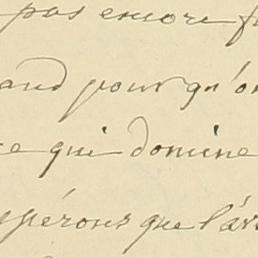 pas encore f
and pour qu'on
ce qui domine
spérons que l'av